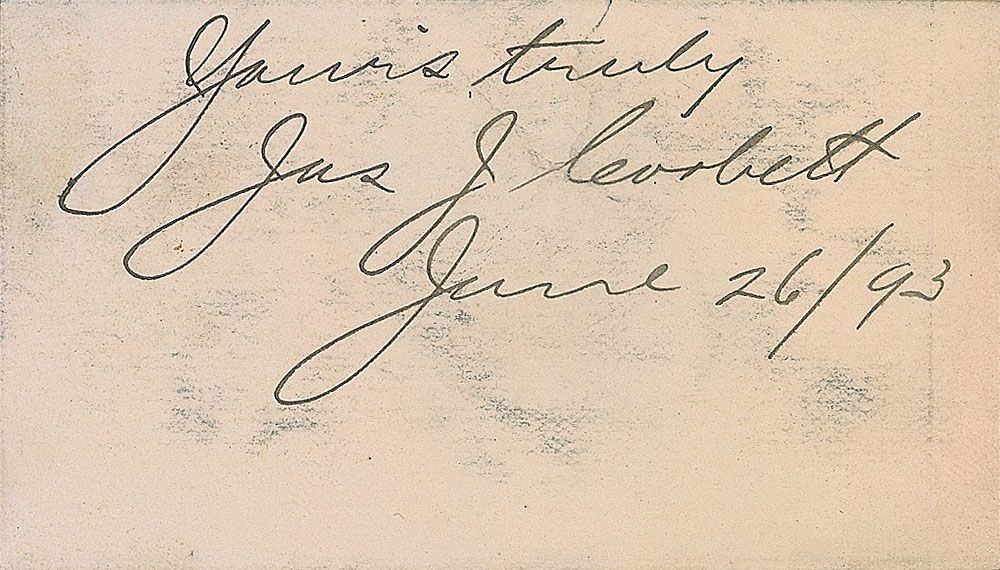 Yours truly
Jas J Corbett
June 26/93